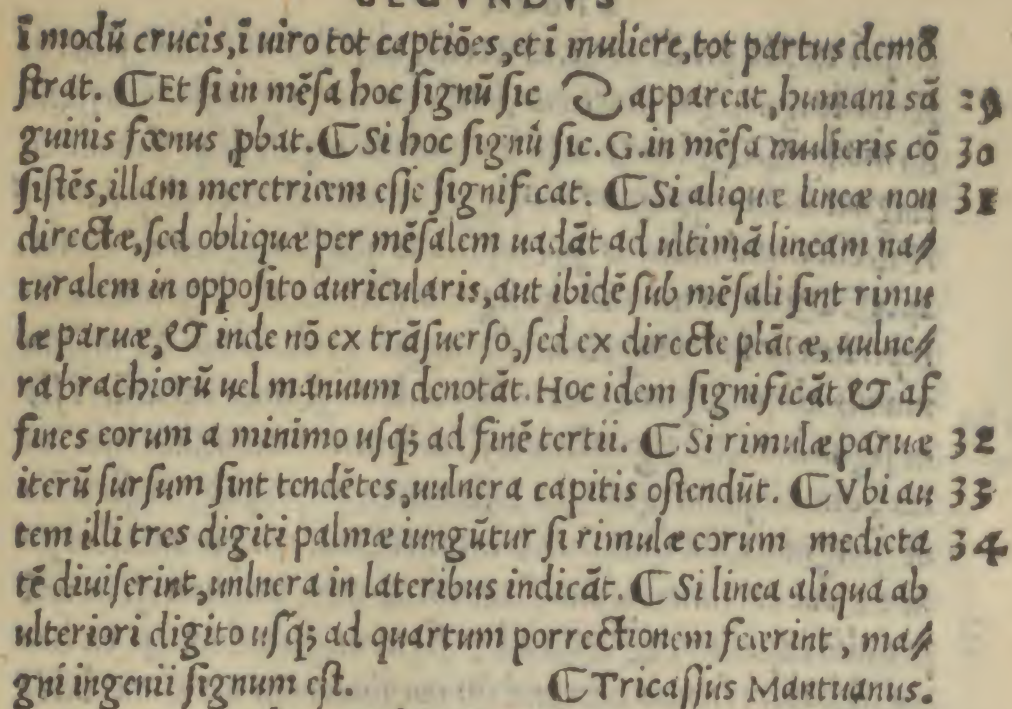 SECVNDVS
ī modū crucis, ī uiro tot captiōes, et ī muliere, tot partus demō
ſtrat. ⸿ Et ſi in mēſa hoc ſignū ſic appareat, humani sā 29
guinis fœnus ꝓbat. ⸿ Si hoc ſignū ſic. G. in mēſa mulieris cō 30
ſiſtēs, illam meretricem eſſe ſignificat. ⸿ Si alique lineæ non 31
directæ, ſed obliquæ per mēſalem uadāt ad ultimā lineam na⸗
turalem in oppoſito auricularis, aut ibidē ſub mēſali ſint rimu
læ paruæ, & inde nō ex trāſuerſo, ſed ex directe plātæ, uulne⸗
ra brachiorū uel manuum denotāt. Hoc idem ſignificāt & af
fines eorum a minimo uſq; ad finē tertii. ⸿ Si rimulæ paruæ 32
iterū ſurſum ſint tendētes, uulnera capitis oſtendūt. ⸿ Vbi au 33
tem illi tres digiti palmæ iungūtur ſi rimulæ eorum medieta 34
tē diuiſerint, unlnera in lateribus indicāt. ⸿ Si linea aliqua ab
ulteriori digito uſq; ad quartum porrectionem fecerint, ma⸗
gni ingenii ſignum eſt. ⸿ Tricaſſus Mantuanus.